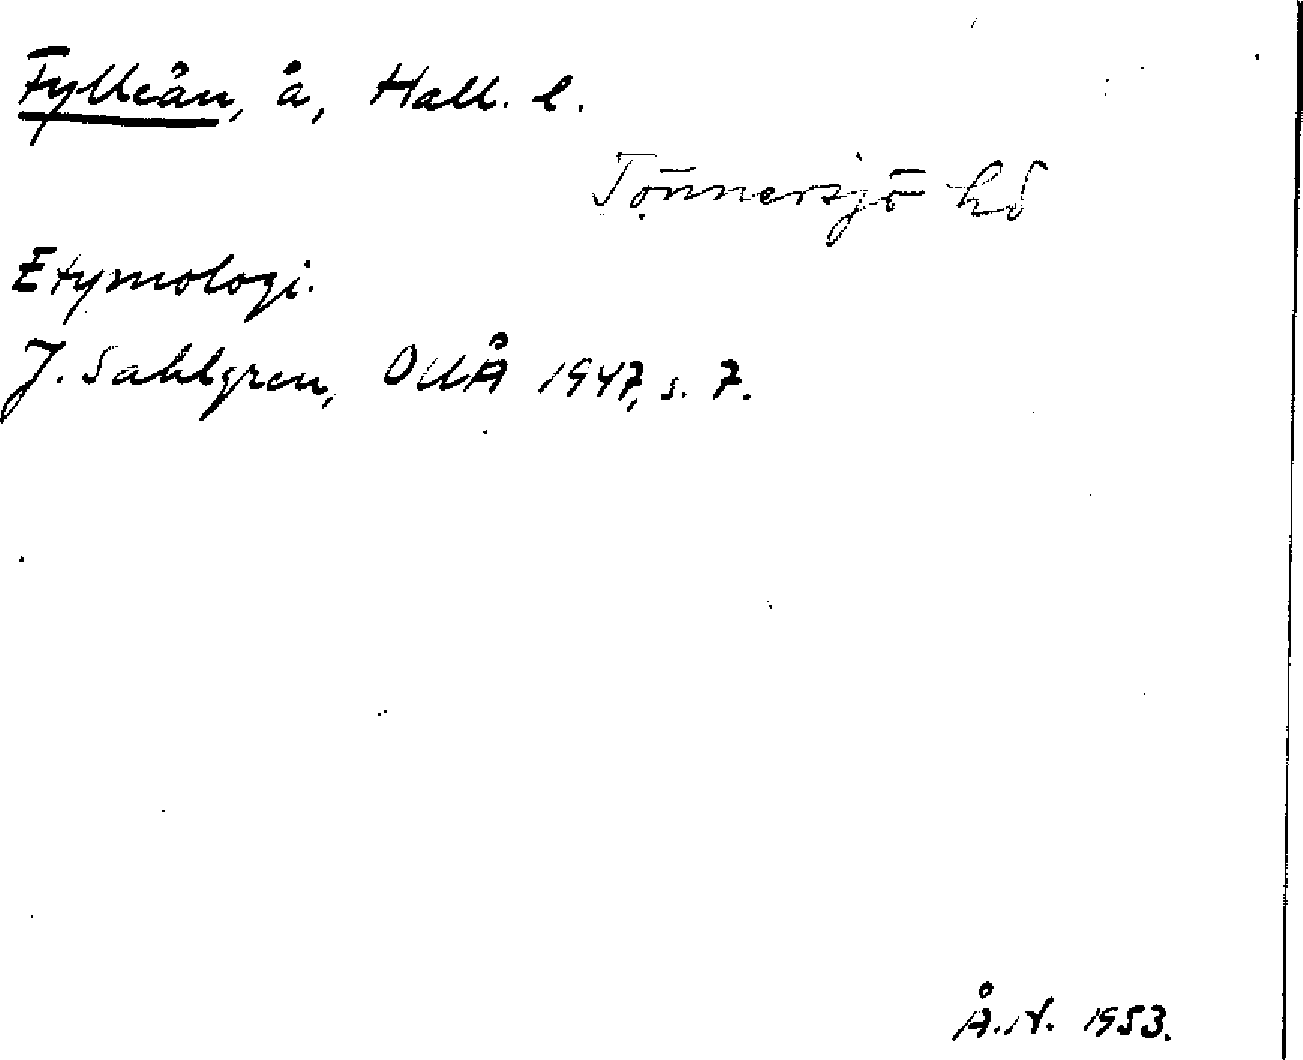 Fylleån, å, Hall. l.
Tönnersjö hd
Etymologi.
J. Sahlgren, OUÅ 1947, s. 7.
Å. N. 1953.